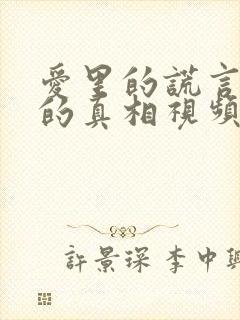 愛里的謊言
的真相視頻
許景琛 李中興